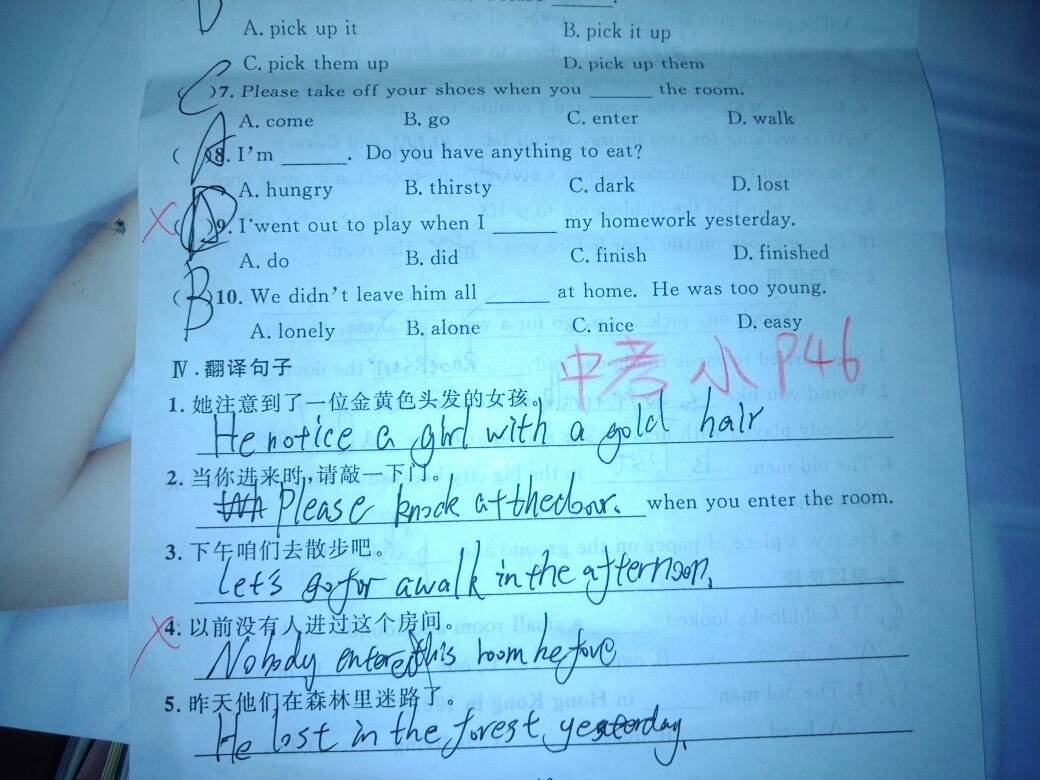 D
A. pick up it B. pick it up
C. pick them up D. pick up them
( C )7. Please take off your shoes when you ______ the room.
A. come B. go C. enter D. walk
( A )8. I'm ______. Do you have anything to eat?
A. hungry B. thirsty C. dark D. lost
( D )9. I went out to play when I ______ my homework yesterday.
A. do B. did C. finish D. finished
( B )10. We didn't leave him all ______ at home. He was too young.
A. lonely B. alone C. nice D. easy
Ⅳ.翻译句子 中考 小 P46
1. 她注意到了一位金黄色头发的女孩。
He notice a girl with a gold hair
2. 当你进来时,请敲一下门。
Please knock at the door. when you enter the room.
3. 下午咱们去散步吧。
Let's go for a walk in the afternoon.
4. 以前没有人进过这个房间。
Nobody entered this room before
5. 昨天他们在森林里迷路了。
He lost in the forest yesterday.